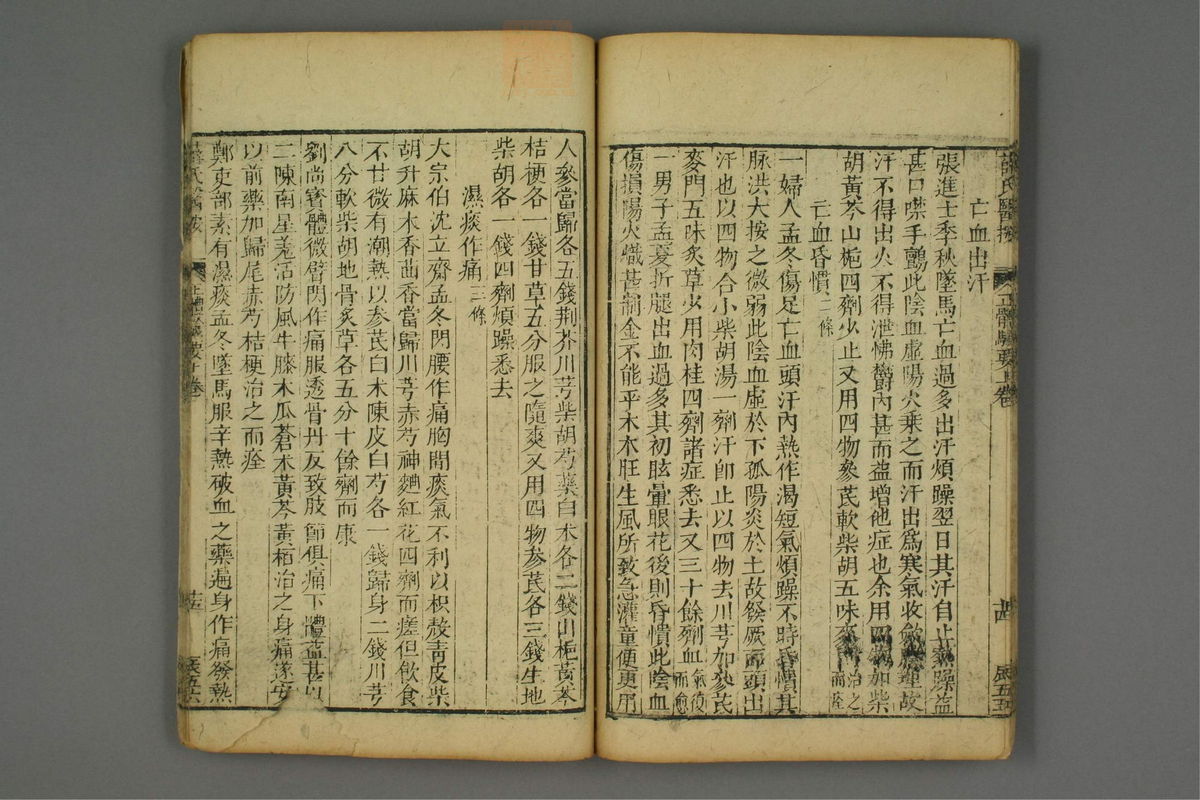 亡血出汗
張進士季秋墜馬亡血過多出汗煩躁翌日其汗自止熱躁益
甚口噤手顫此陰血虛陽火乘之而汗出爲寒氣收斂腠理故
汗不得出火不得泄怫欝內甚而益增他症也余用四物加柴
胡黃芩山梔四劑少止又用四物參芪軟柴胡五味麥治之而痊
亡血昏憒二條
一婦人孟冬傷足亡血頭汗內熱作渴短氣煩躁不時昏憒其
脉洪大按之微弱此陰血虛於下孤陽炎於上故發厥而頭出
汗也以四物合小柴胡湯一劑汗卽止以四物去川芎加參芪
麥門五味炙草少用肉桂四劑諸症悉去又三十餘劑血氣復而愈
一男子孟夏折腿出血過多其初眩暈眼花後則昏憒此陰血
傷損陽火熾甚制金不能平木木旺生風所致急灌童便更用
人參當歸各五錢荆芥川芎柴胡芍藥白术各二錢山梔黃芩
桔梗各一錢甘草五分服之隨爽又用四物參芪各三錢生地
柴胡各一錢四劑煩躁悉去
濕痰作痛三條
大宗伯沈立齋孟冬閃腰作痛胸間痰氣不利以枳殼青皮柴
胡升麻木香茴香當歸川芎赤芍神麯紅花四劑而瘥但飲食
不甘微有潮熱以參芪白术陳皮白芍各一錢歸身二錢川芎
八分軟柴胡地骨炙草各五分十餘劑而康
劉尚寶體微臂閃作痛服透骨丹反致肢節俱痛下體益甚以
二陳南星羗活防風牛膝木瓜蒼术黃芩黃栢治之身痛遂安
以前藥加歸尾赤芍桔梗治之而痊
鄭吏部素有濕痰孟冬墜馬服辛熱破血之藥遍身作痛發熱